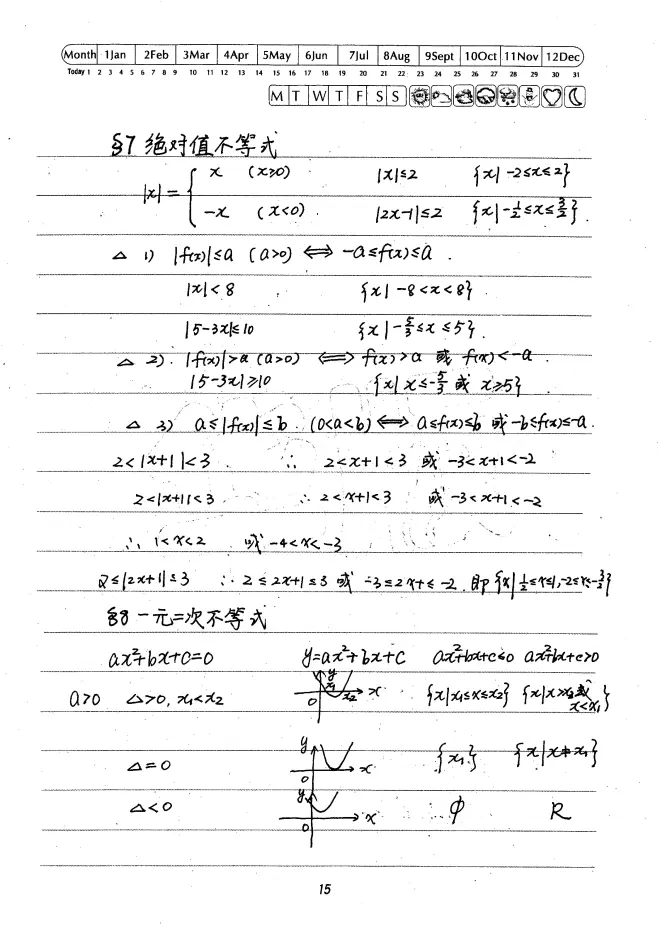 Month 1Jan 2Feb 3Mar 4Apr 5May 6Jun 7Jul 8Aug 9Sept 10Oct 11Nov 12Dec
Today 1 2 3 4 5 6 7 8 9 10 11 12 13 14 15 16 17 18 19 20 21 22 23 24 25 26 27 28 29 30 31
M T W T F S S
§7 绝对值不等式
|x| = { x (x≥0) |x|≤2 {x| -2≤x≤2}
-x (x<0). |2x-1|≤2 {x|-1/2≤x≤3/2}.
△ 1) |f(x)|≤a (a>0) ⟺ -a≤f(x)≤a.
|x|<8 {x|-8<x<8}
|5-3x|≤10 {x|-5/3≤x≤5}.
△ 2). |f(x)|>a (a>0) ⟺ f(x)>a 或 f(x)<-a
|5-3x|≥10 {x|x≤-5/3 或 x≥5}
△ 3) a≤|f(x)|≤b. (0<a<b) ⟺ a≤f(x)≤b 或 -b≤f(x)≤-a.
2<|x+1|<3. ∴ 2<x+1<3 或 -3<x+1<-2
2<|x+1|<3. ∴ 2<x+1<3 或 -3<x+1<-2
∴ 1<x<2 或 -4<x<-3
2≤|2x+1|≤3 ∴ 2≤2x+1≤3 或 -3≤2x+1≤-2. 即 {x|1/2≤x≤1, -2≤x≤-3/2}
§8 一元二次不等式
ax²+bx+c=0 y=ax²+bx+c ax²+bx+c≤0 ax²+bx+c>0
a>0 △>0, x₁<x₂ y x₁ x₂ x 0 {x|x₁≤x≤x₂} {x|x>x₂或
x<x₁}
△=0 y x 0 {x₁} {x|x≠x₁}
△<0 y x 0 ∅ R
15